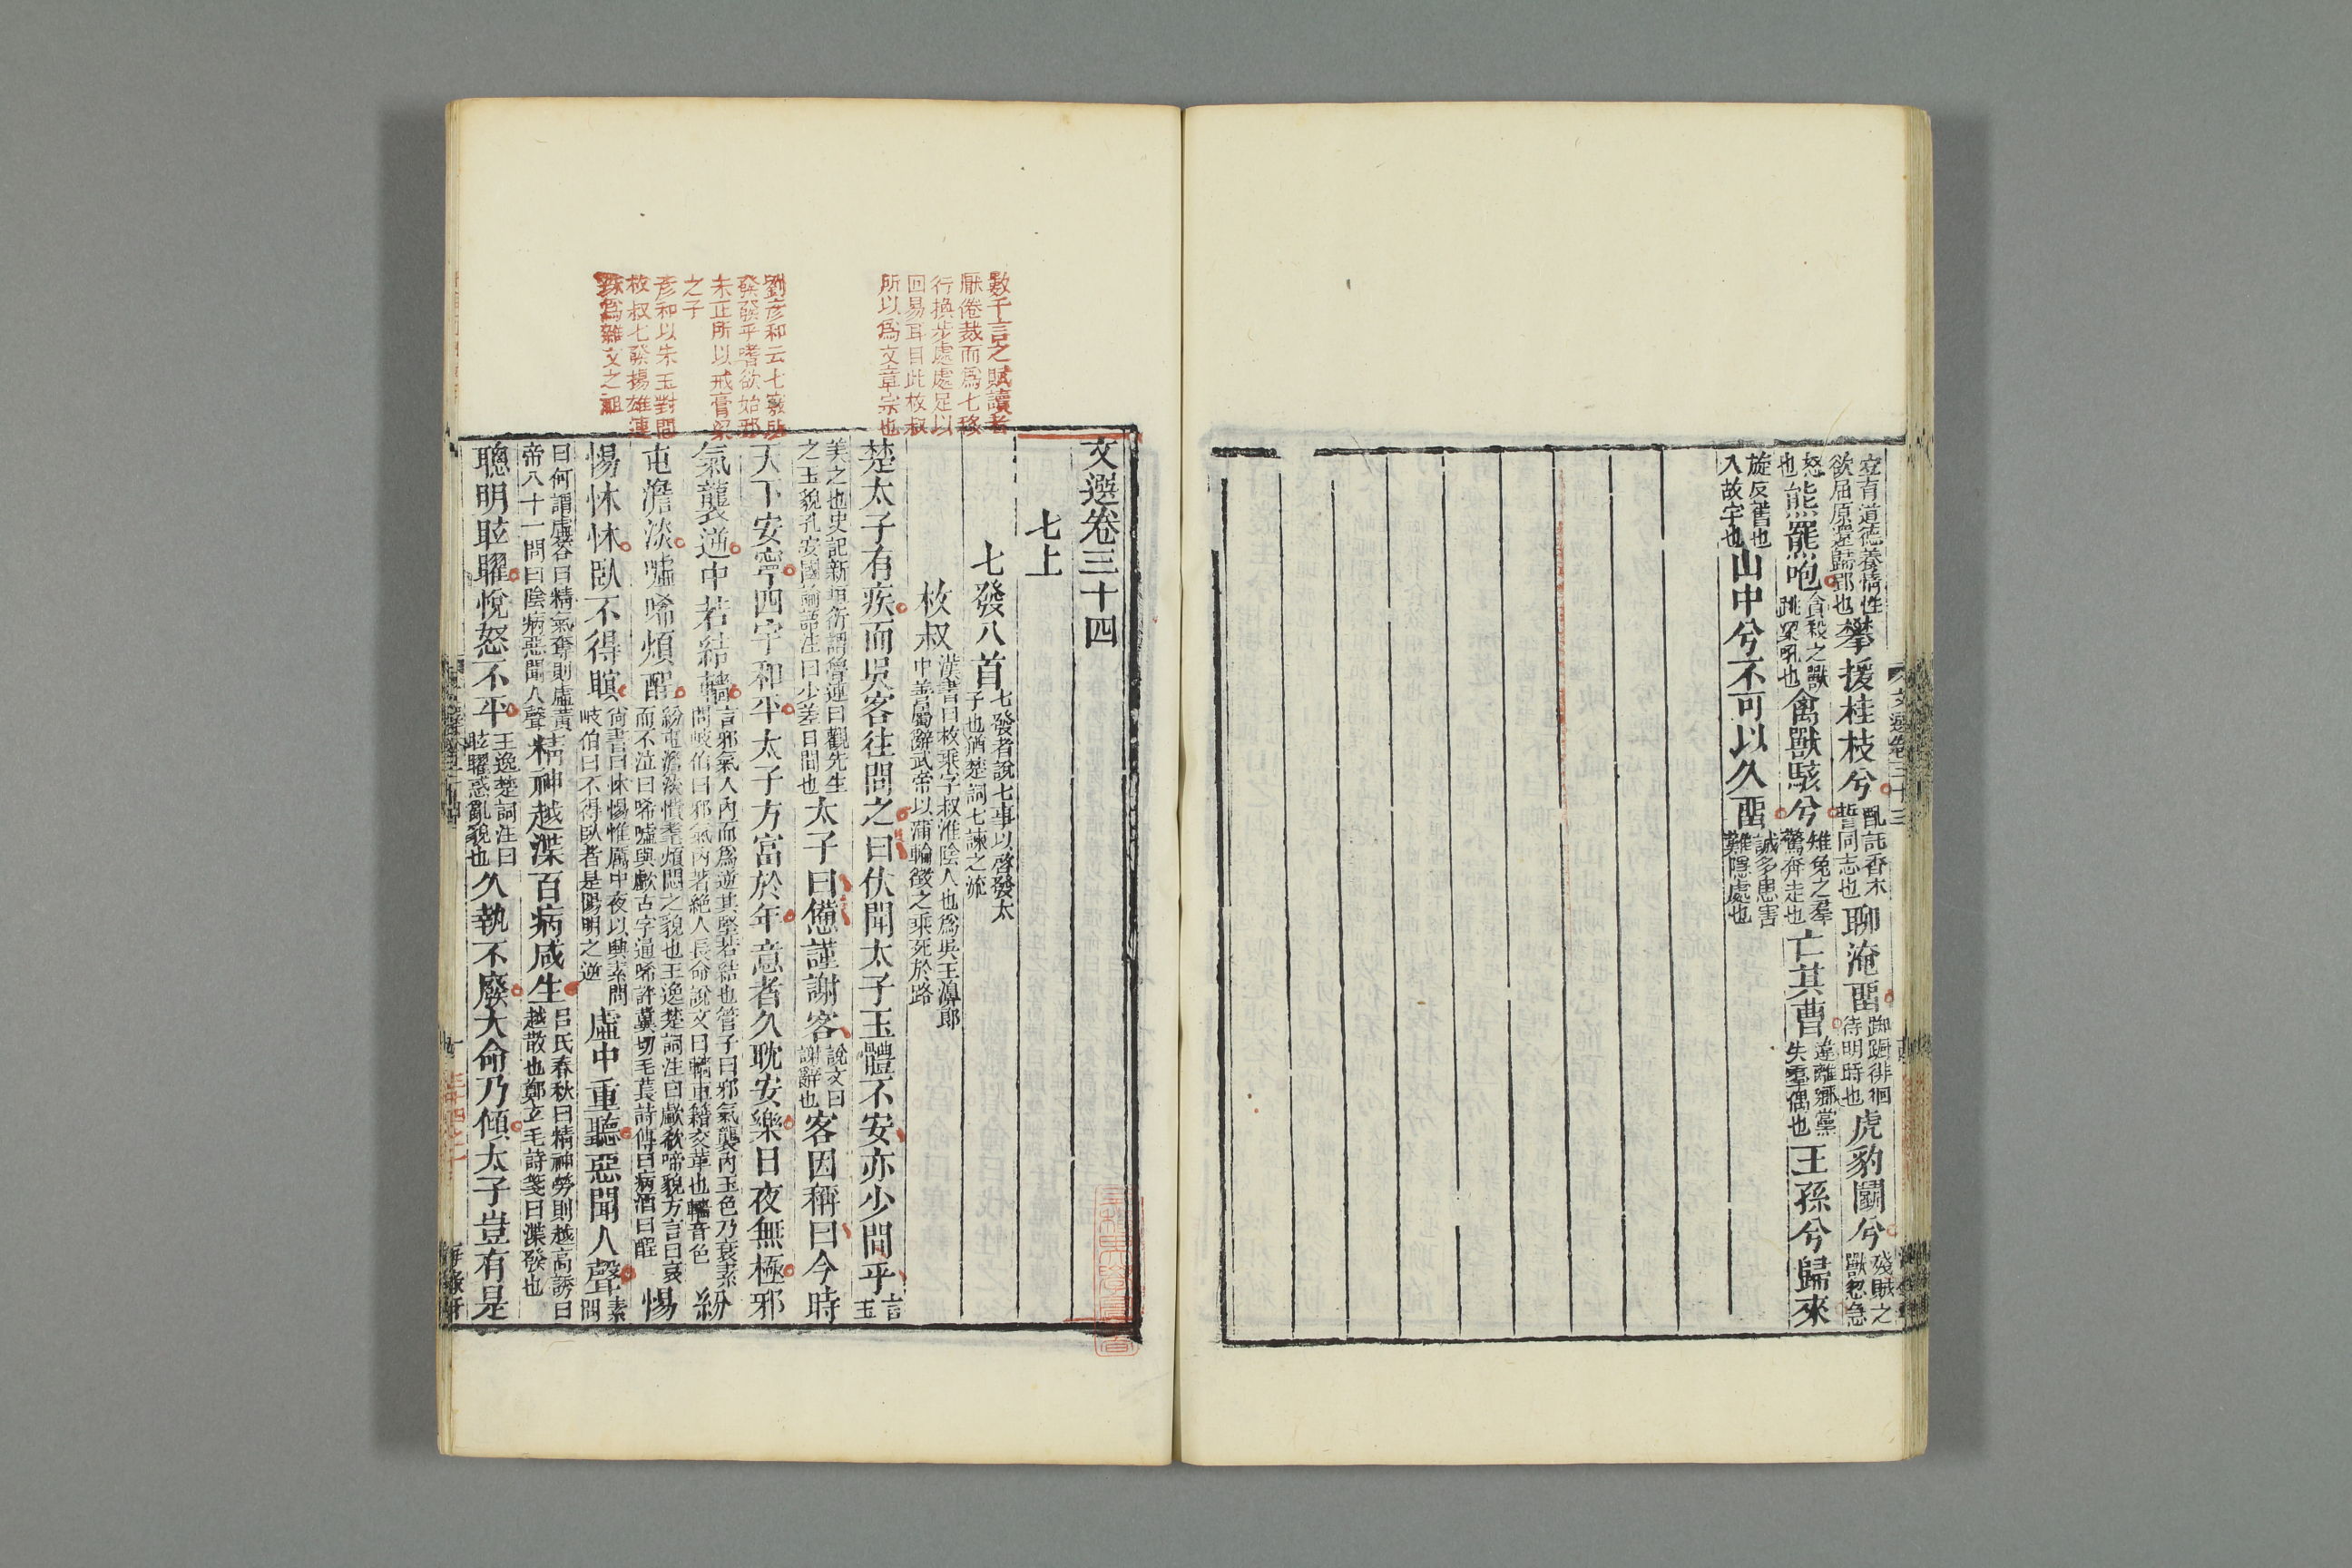 立有道德養情性
欲屈原還歸郢也攀援桂枝兮配託香木
誓同志也聊淹留踟躕徘徊
待明時也虎豹鬭兮殘賊之
獸忽急
怒也熊羆咆貪殺之獸
跳梁吼也禽獸駭兮雉兔之羣
驚奔走也亡其曹違離鄉黨
失羣偶也王孫兮歸來
旋反舊也
入故宇也山中兮不可以久留誠多患害
難隱處也
文選卷三十三
文選卷三十四
七上
七發八首七發者說七事以啓發太
子也猶楚詞七諫之流
枚叔漢書曰枚乘字叔淮陰人也爲吳王濞郎
中善屬辭武帝以蒲輪徵之乘死於路
楚太子有疾而吳客往問之曰伏聞太子玉體不安亦少間乎言玉
美之也史記新垣衍謂魯連曰觀先生
之玉貌孔安國論語注曰少差曰間也太子曰憊謹謝客說文曰
謝辭也客因稱曰今時
天下安寧四宇和平太子方富於年意者久耽安樂日夜無極邪
氣襲逆中若結轖言邪氣入內而爲逆其堅若結也管子曰邪氣襲內玉色乃衰素
問岐伯曰邪氣內著絶人長命說文曰轖車籍交革也轖音色紛
屯澹淡噓唏煩酲紛屯澹淡憒耄煩悶之貌也王逸楚詞注曰歔欷啼貌方言曰哀
而不泣曰唏噓與歔古字通唏許冀切毛萇詩傳曰病酒曰酲惕
惕怵怵臥不得瞑尚書曰怵惕惟厲中夜以興素問
岐伯曰不得臥者是陽明之逆虛中重聽惡聞人聲素問
曰何謂虛答曰精氣奪則虛黃
帝八十一問曰陰病惡聞人聲精神越渫百病咸生呂氏春秋曰精神勞則越高誘曰
越散也鄭玄毛詩箋曰渫發也
聰明眩曜悅怒不平王逸楚詞注曰
眩曜惑亂貌也久執不廢大命乃傾太子豈有是
數千言之賦讀者
厭倦裁而爲七移
行換步處處足以
回易耳目此枚叔
所以爲文章宗也
劉彥和云七竅所
發發乎嗜欲始邪
末正所以戒膏粱
之子
彥和以宋玉對問
枚叔七發揚雄連
珠爲雜文之祖